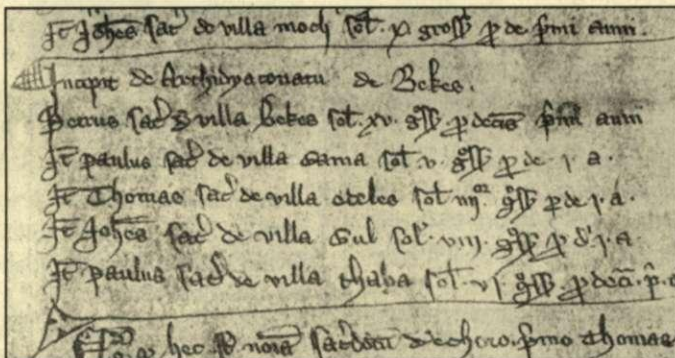 Jt Joh̅es sac̅ de villa moch sol̅ x gross̅ p de p̅mi anni.
Incipit de Archidyaconatu de Bekes.
Petrus sac̅ d villa Bekes sol̅ xv. g̅ss̅ p decīs p̅mi anni
Jt̅ paulus sac̅ de villa Gama sol̅ v. g̅ss̅ p de · j · a ·
Jt̅ Thomas sac̅ de villa oteles sol̅ iiijᵒʳ g̅ss̅ p de j · a ·
Jt̅ Joh̅es sac̅ de villa Gul sol̅ · viii · g̅ss̅ p d̅ · j · a
Jt̅ paulus sac̅ de villa thaba sol̅ · vj g̅ss̅ · p decī · p̅ ·
hec st̅ noīa sac̅dotu p̅mo Thomas